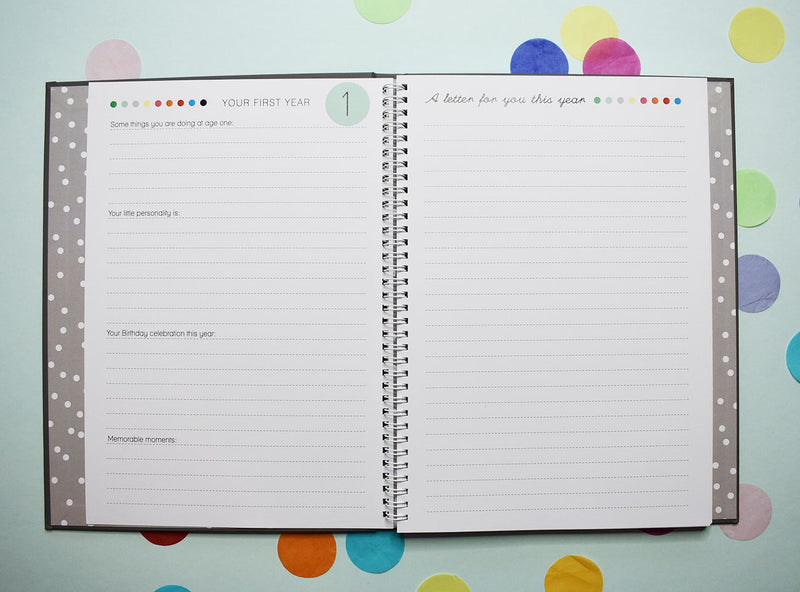 YOUR FIRST YEAR
1
Some things you are doing at age one:
Your little personality is:
Your Birthday celebration this year:
Memorable moments:
A letter for you this year